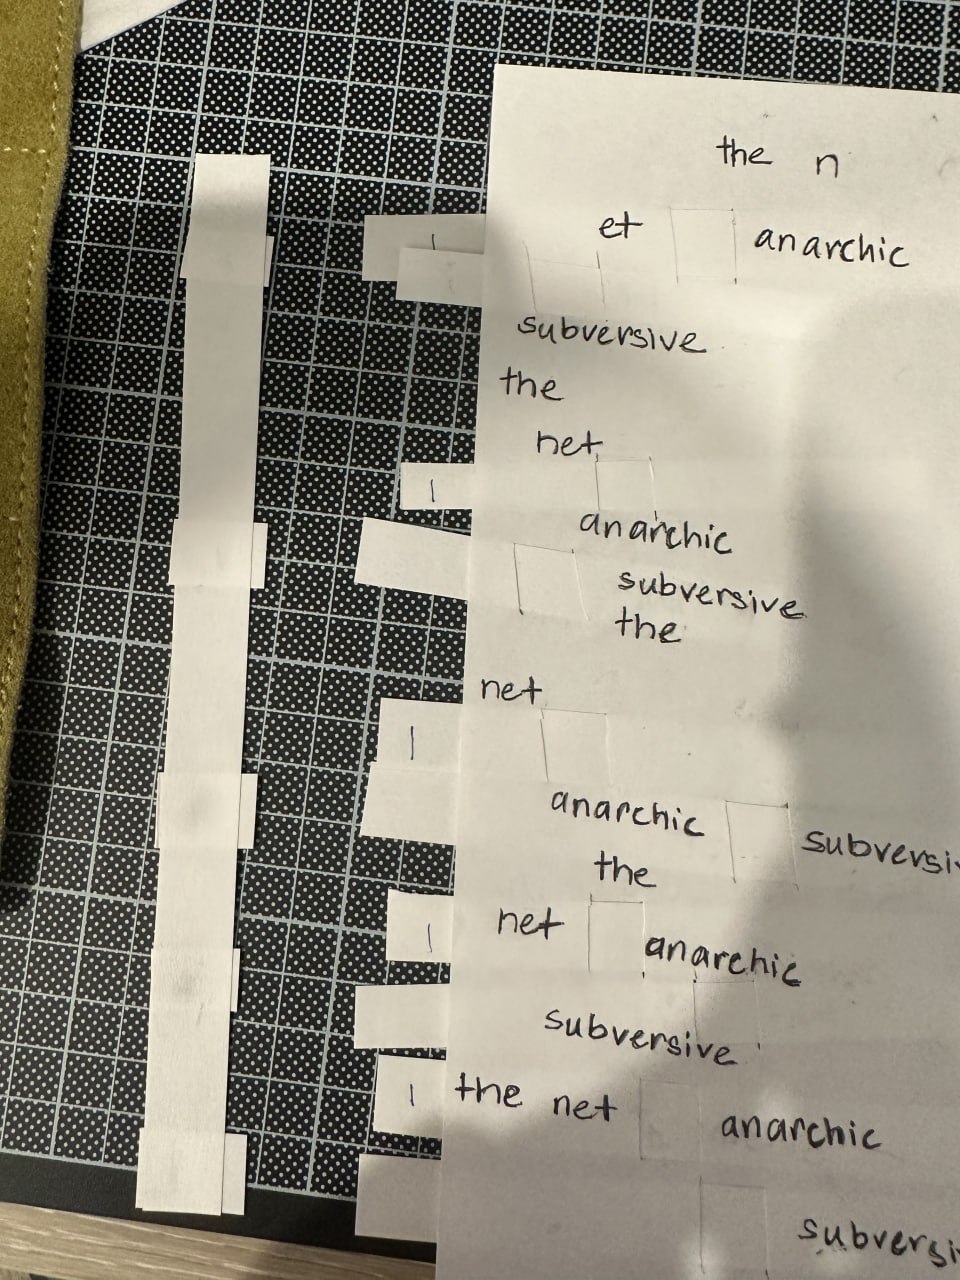 the n
et anarchic
subversive
the
net
anarchic
subversive
the
net
anarchic subversi
the
net anarchic
subversive
the net anarchic
subversi